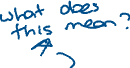 what does
this mean?